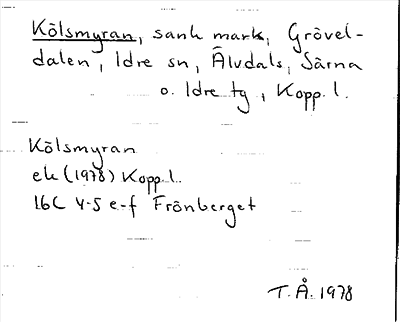 Kölsmyran, sank mark, Grövel-
dalen, Idre sn, Älvdals, Särna
o. Idre tg, Kopp. l.
Kölsmyran
ek (1978) Kopp. l.
16C 4-5 e-f Frönberget
T.Å. 1978